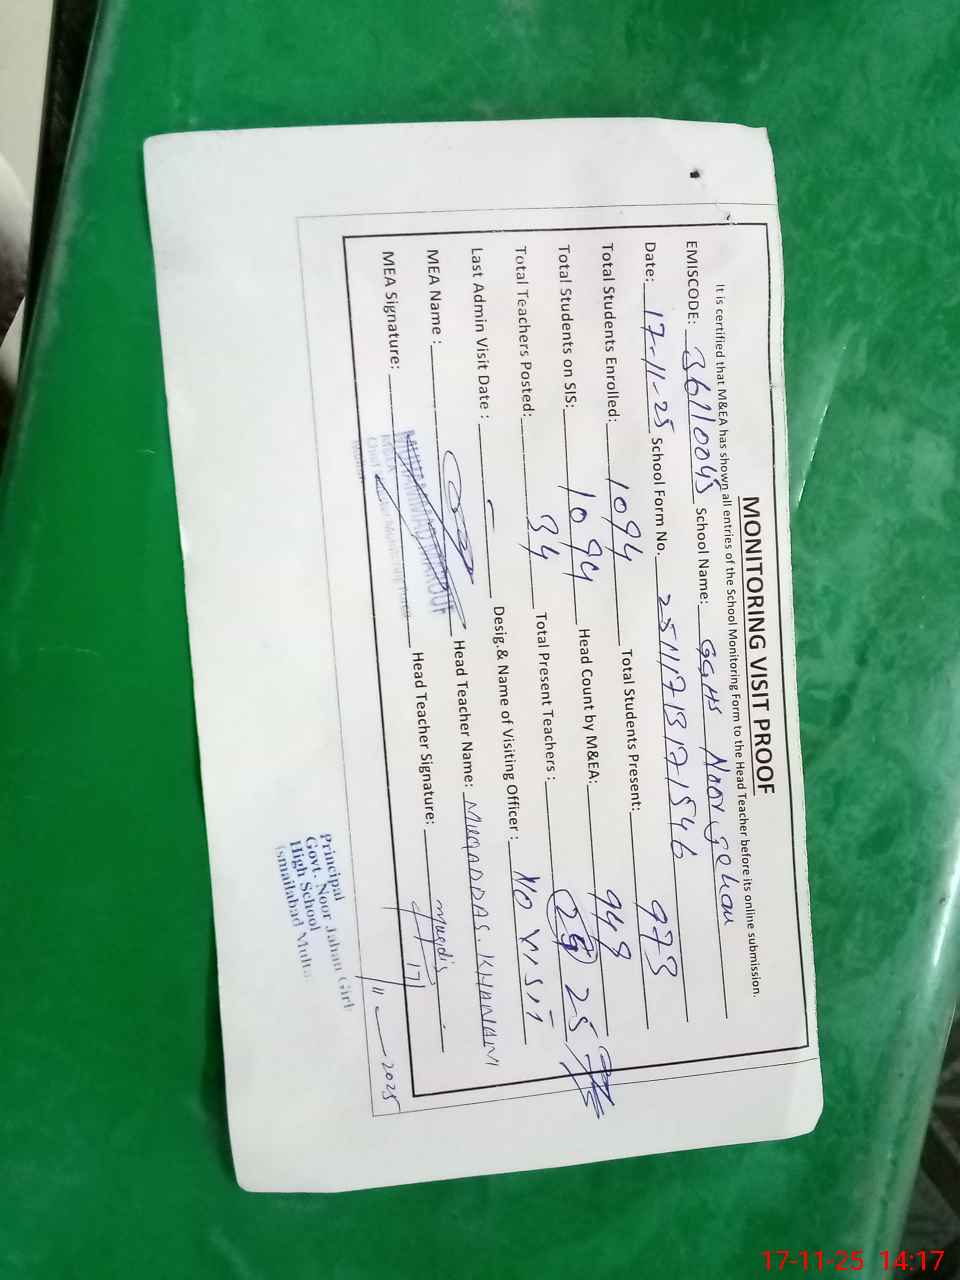 MONITORING VISIT PROOF
It is certified that M&EA has shown all entries of the School Monitoring Form to the Head Teacher before its online submission.
EMISCODE: 36110045 School Name: GGHS Noor Jehan
Date: 17-11-25 School Form No. 25111713171546
Total Students Enrolled: 1094 Total Students Present: 973
Total Students on SIS: 1094 Head Count by M&EA: 949
Total Teachers Posted: 34 Total Present Teachers : 25 25
Last Admin Visit Date : - Desig.& Name of Visiting Officer : NO VISIT
MEA Name : MUHAMMAD MAROUF Head Teacher Name: MUQADDAS KHANAM
MEA Signature: Head Teacher Signature:
17
11 - 2025
Principal
Govt. Noor Jahan Girls
High School
Ismailabad Multan
17-11-25 14:17